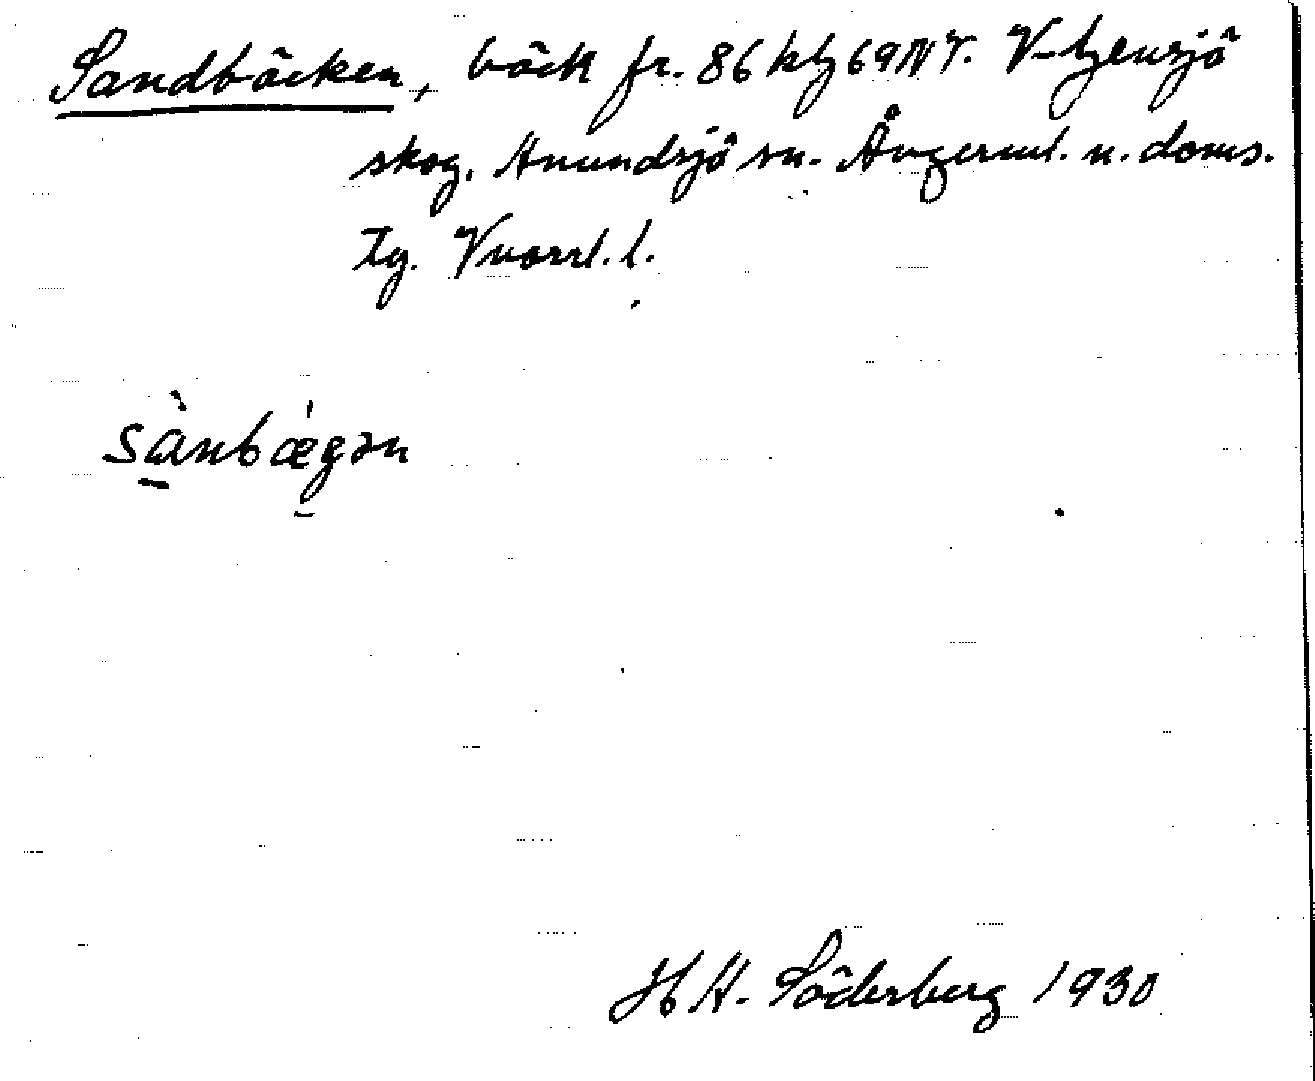 Sandbäcken, bäck fr. 86 kbl 69 NV. V-Gensjö
skog, Anundsjö sn. Ångerml. n. doms.
Tg. Vnorrl. l.
sànbǽgən
H A. Söderberg 1930